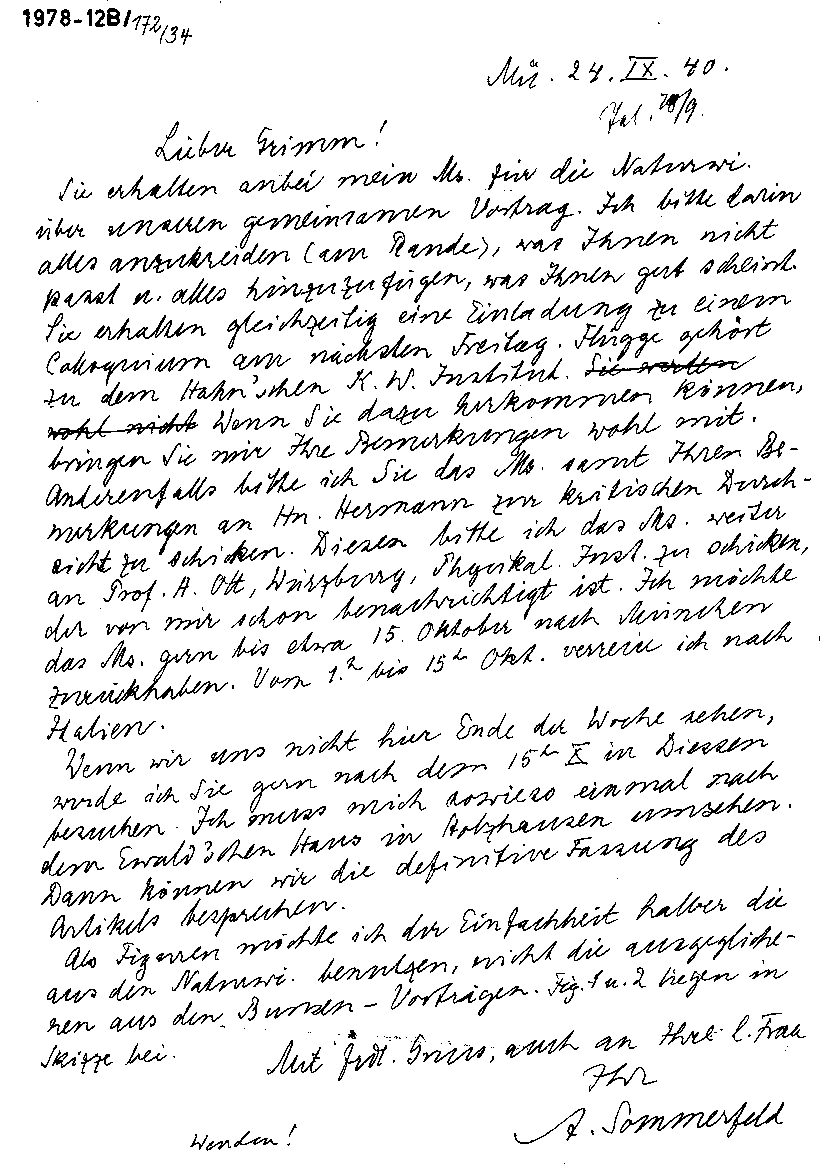 1978-12B/172/34
Mü. 24. IX. 40.
28/9.
Lieber Grimm!
Sie erhalten anbei mein Ms. für die Naturwi.
über unseren gemeinsamen Vortrag. Ich bitte darin
alles anzukreiden (am Rande), was Ihnen nicht
passt u. alles hinzuzufügen, was Ihnen gut scheint.
Sie erhalten gleichzeitig eine Einladung zu einem
Colloquium am nächsten Freitag. Flügge gehört
zu dem Hahn'schen K. W. Institut. Sie werden
wohl nicht Wenn Sie dazu herkommen können,
bringen Sie mir Ihre Bemerkungen wohl mit.
Anderenfalls bitte ich Sie das Ms. samt Ihren Be-
merkungen an Hn. Hermann zur kritischen Durch-
sicht zu schicken. Diesen bitte ich das Ms. weiter
an Prof. H. Ott, Würzburg, Physikal. Inst. zu schicken,
der von mir schon benachrichtigt ist. Ich möchte
das Ms. gern bis etwa 15. Oktober nach München
zurückhaben. Vom 1. bis 15ten Okt. verreise ich nach
Italien.
Wenn wir uns nicht hier Ende der Woche sehen,
würde ich Sie gern nach dem 15ten X in Diessen
besuchen. Ich muss mich sowieso einmal nach
dem Ewald'schen Haus in Holzhausen umsehen.
Dann können wir die definitive Fassung des
Artikels besprechen.
Als Figuren möchte ich der Einfachheit halber die
aus den Naturwi. benutzen, nicht die ausgegliche-
nen aus den Bunsen-Vorträgen. Fig. 1 u. 2 liegen in
Skizze bei.
Mit frdl. Gruss, auch an Ihre l. Frau
Ihr
A. Sommerfeld
Wenden!